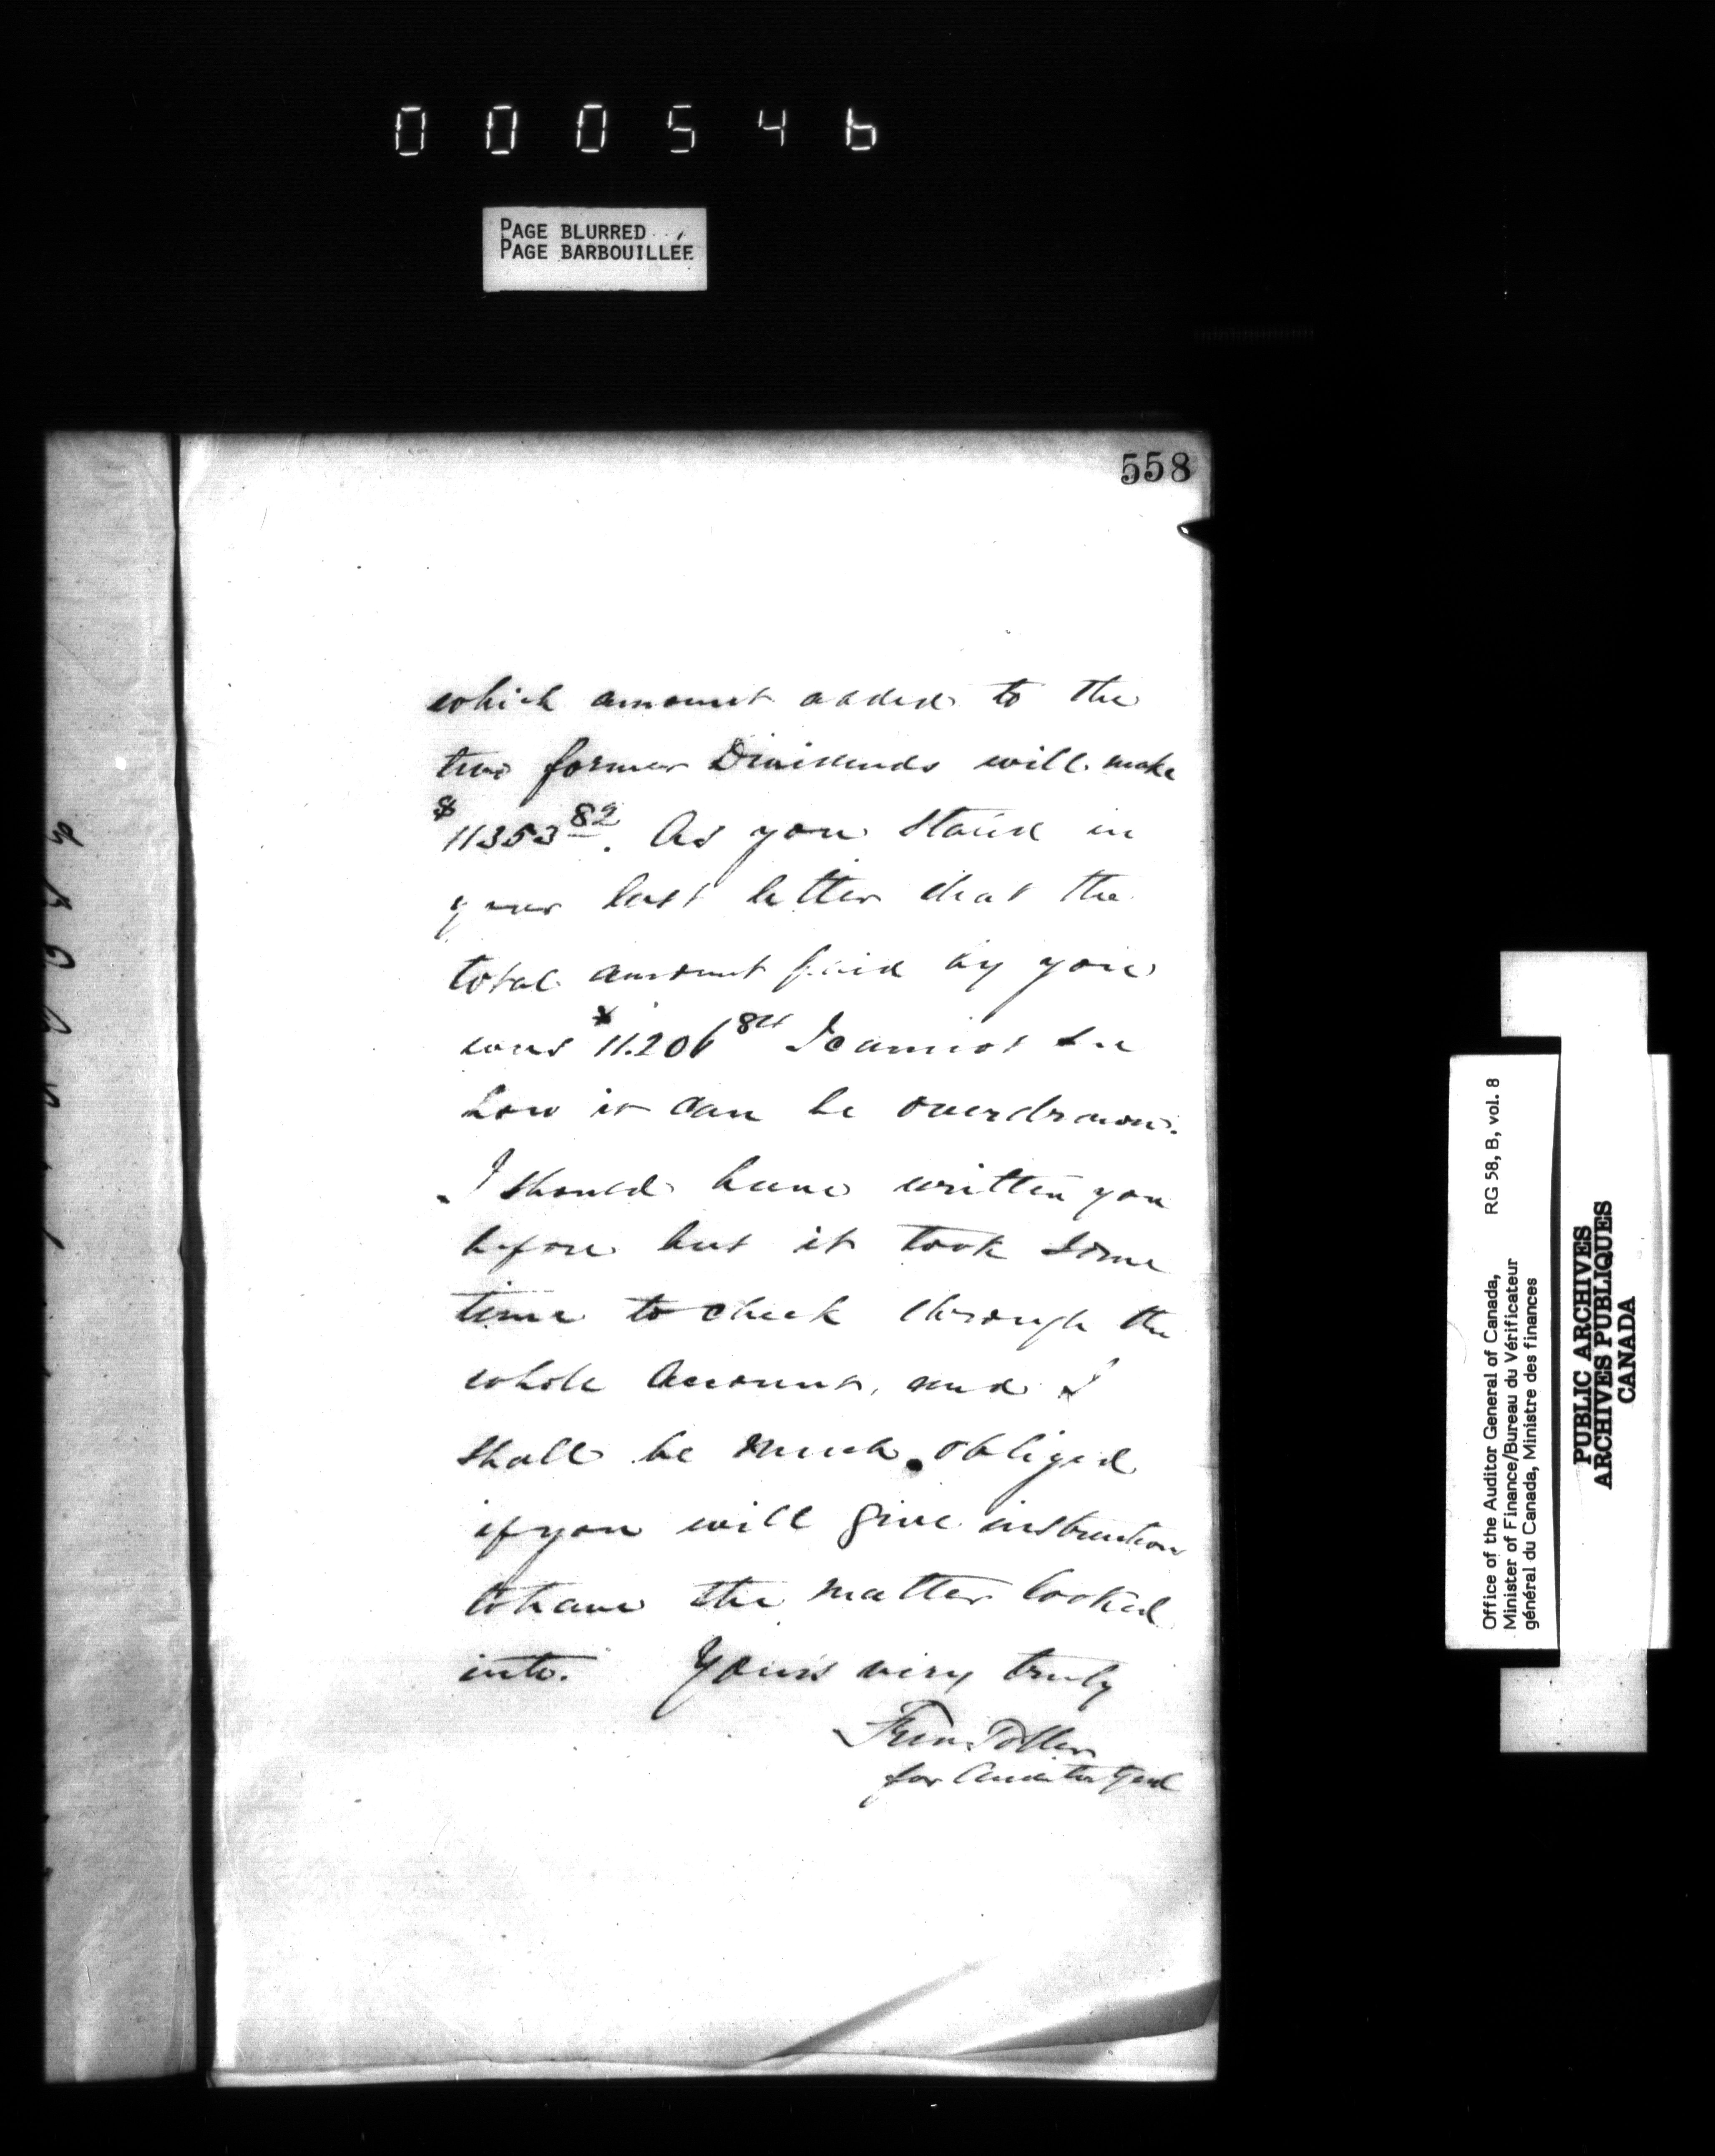 000546
PAGE BLURRED
PAGE BARBOUILLÉE
558
which amount added to the
two former Dividends will make
$11353 82. As you stated in
your last letter that the
total amount paid by you
was $11.206 84 I cannot see
how it can be overdrawn.
I should have written you
before but it took some
time to check through the
whole Account, and I
shall be much obliged
if you will give instructions
to have the matter looked
into. Yours very truly
for Auditor Genl
Office of the Auditor General of Canada, RG 58, B, vol. 8
Minister of Finance/Bureau du Vérificateur
général du Canada, Ministre des finances
PUBLIC ARCHIVES
ARCHIVES PUBLIQUES
CANADA